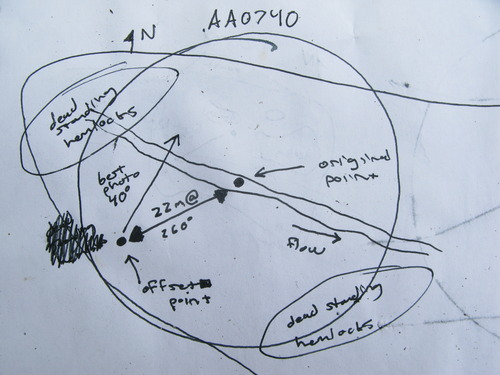 .AA0740
N
dead
standing
hemlocks
best
photo
40°
original
point
22m@
260°
flow
offset
point
dead standing
hemlocks